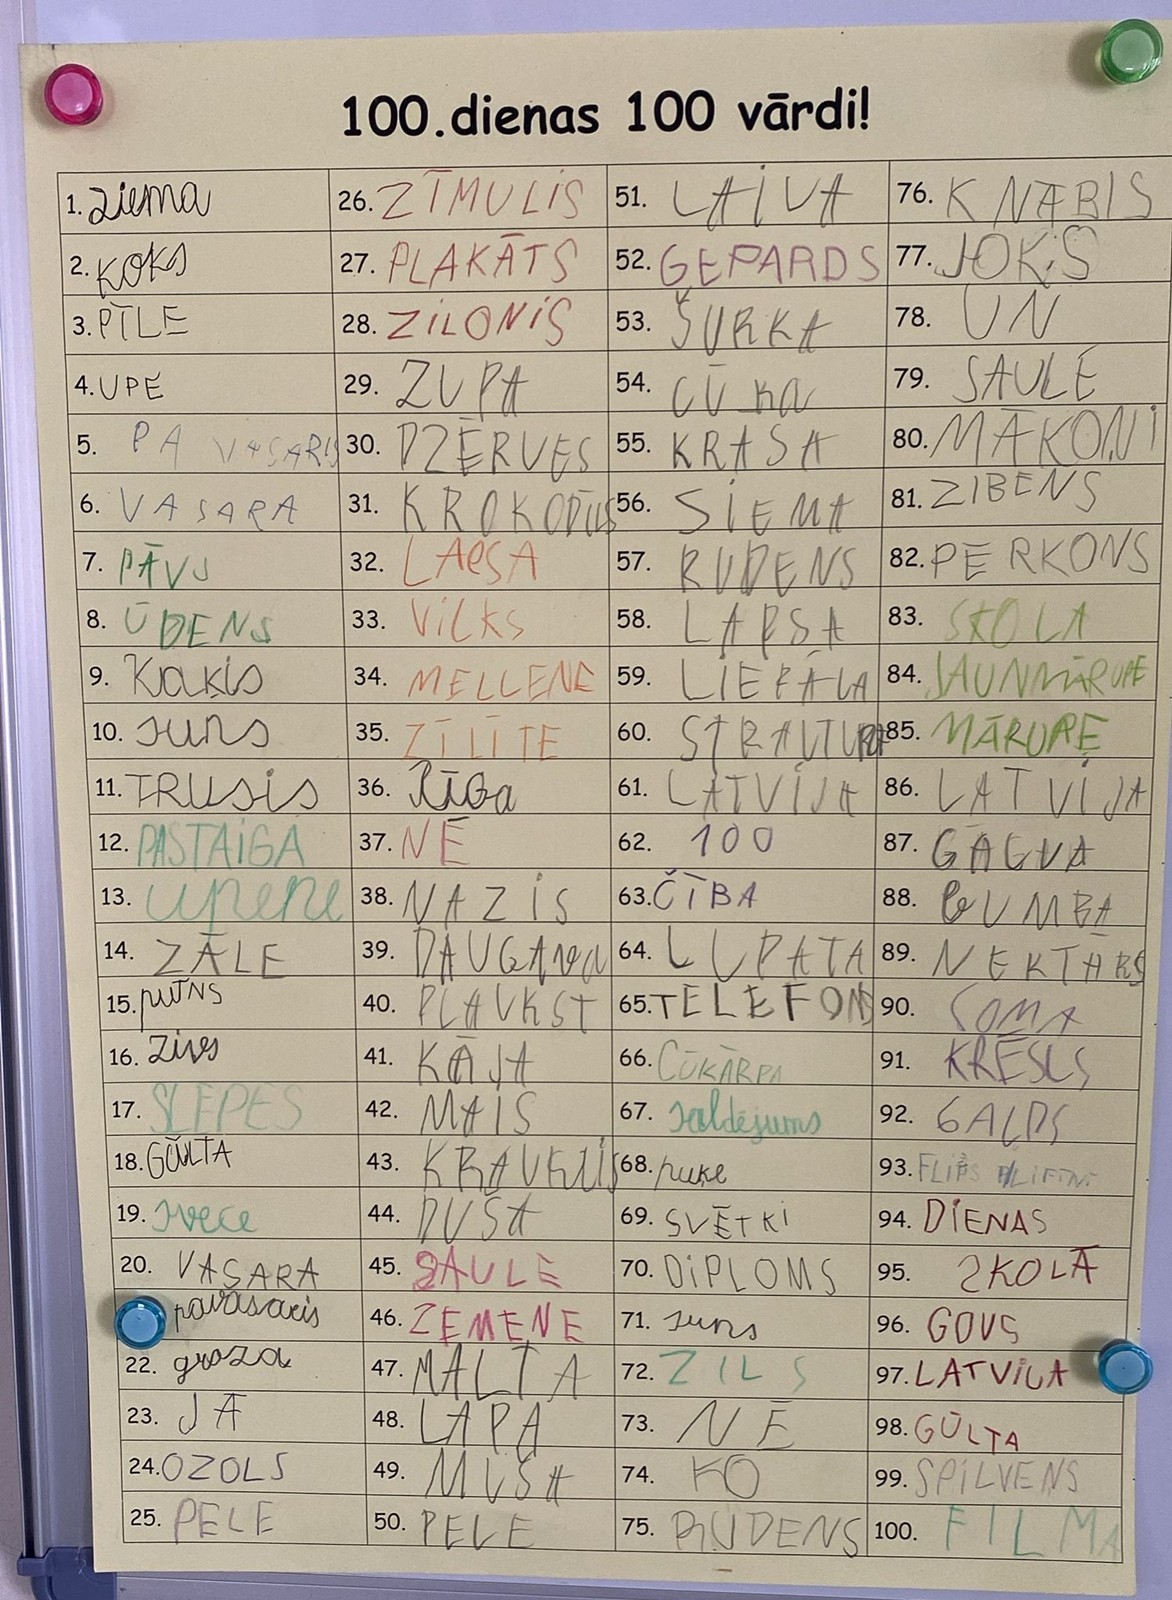 100.dienas 100 vārdi!
1. ziema
2. KOKS
3. PĪLE
4. UPE
5. PAVASARIS
6. VASARA
7. PĀVS
8. ŪDENS
9. Kakis
10. suns
11. TRUSIS
12. PASTAIGA
13. upene
14. ZĀLE
15. putns
16. zivs
17. SLĒPES
18. GŪLTA
19. svece
20. VASARA
pavasaris
22. groza
23. JĀ
24. OZOLS
25. PELE
26. ZĪMULIS
27. PLAKĀTS
28. ZILONIS
29. ZUPA
30. DZĒRVES
31. KROKODILS
32. LAPSA
33. VILKS
34. MELLENE
35. ZĪLĪTE
36. Rīga
37. NĒ
38. NAZIS
39. DAUGAVA
40. PLAUKST
41. KĀJA
42. MAIS
43. KRAUKLIS
44. DUŠA
45. SAULE
46. ZEMENE
47. MALTA
48. LAPA
49. MUŠA
50. PELE
51. LAIVA
52. GEPARDS
53. ŠURKA
54. CŪKA
55. KRASA
56. SIEMA
57. RUDENS
58. LAPSA
59. LIEPĀJA
60.
61. LATVIJA
62. 100
63. ČĪBA
64. LUPATA
65. TELEFONS
66. CŪKĀRPA
67. saldējums
68. puķe
69. SVĒTKI
70. DIPLOMS
71. suns
72. ZILS
73. NĒ
74. KO
75. RUDENS
76. KNĀBIS
77. JOKS
78. UN
79. SAULE
80. MĀKOŅI
81. ZIBENS
82. PĒRKONS
83. SKOLA
84. JAUNMĀRUPE
85. MĀRUPE
86. LATVIJA
87. GALVA
88. BUMBA
89. NEKTĀRS
90. SOMA
91. KRĒSLS
92. GALDS
93. FLIPS
94. DIENAS
95. SKOLĀ
96. GOVS
97. LATVIJA
98. GŪLTA
99. SPILVENS
100. FILMA